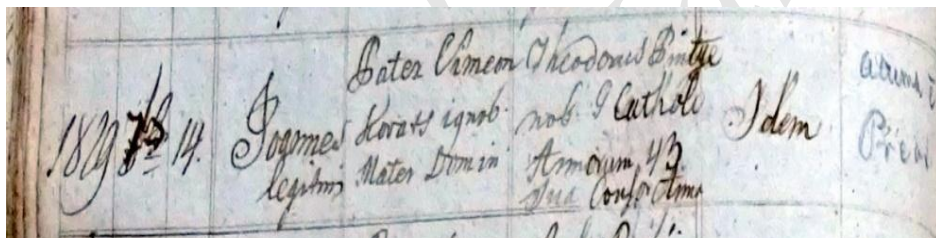 1829 14.
Joannes
legitim
Pater Simeon
Kovats ignob.
Mater Domin
Theodorus Pintye
nob. G Cathol
Annorum 43.
Sua Consor Anna
Idem